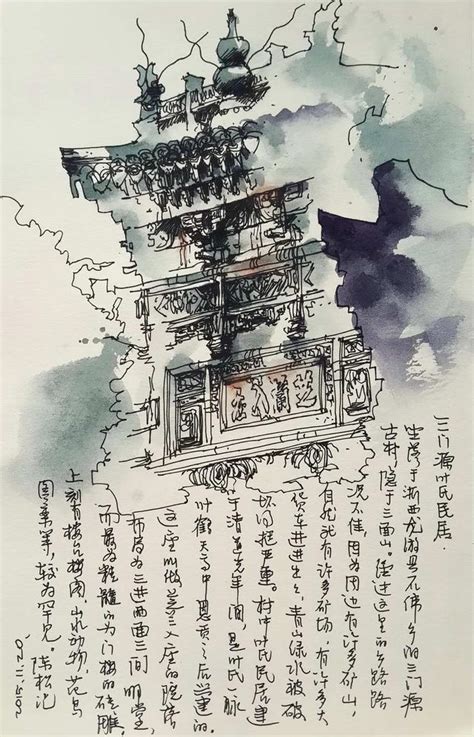 三门源叶氏民居.
坐落于浙西龙游县石佛乡的三门源
古村,隐于三面山。经过这里的乡路路
况不佳,因为周边有许多矿山,
自然就有许多矿场,有许多大
货车进进出出,青山绿水被破
坏的挺严重。村中叶氏民居建
于清道光年间,是叶氏一脉
叶 天高中恩贡之后兴建的
这座叫做芝兰入座的院落
布局为三进两面三间 明堂,
而最为精髓的为门楼的砖雕,
上刻有楼台 阁,山水动物,花鸟
图案等,较为罕见。陈松记